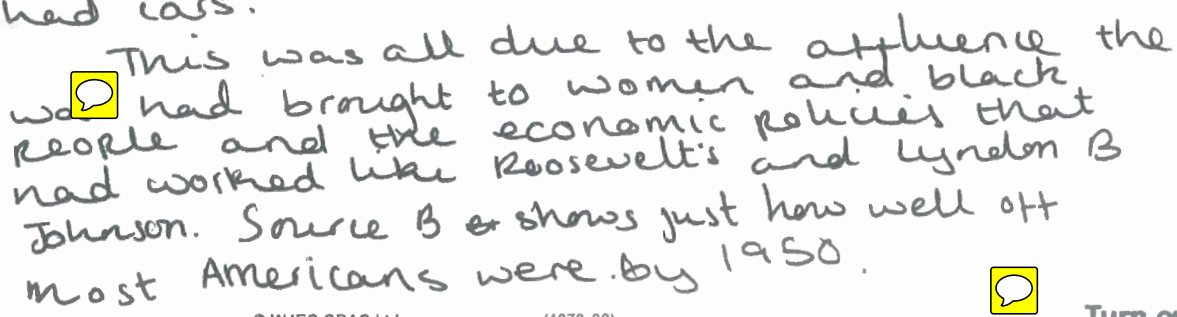 had cars.
This was all due to the affluence the
war had brought to women and black
people and the economic policies that
had worked like Roosevelt's and Lyndon B
Johnson. Source B shows just how well off
most Americans were by 1950.
Turn o